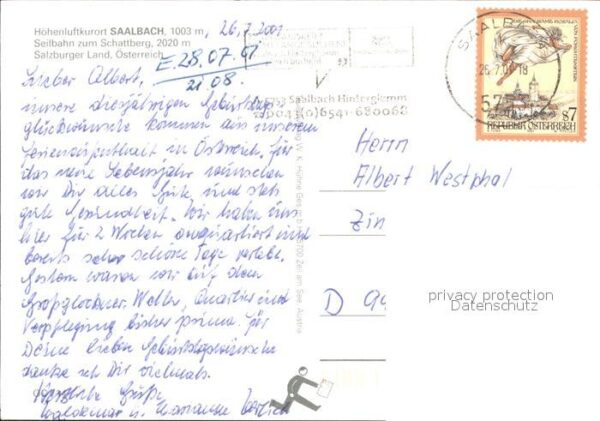 Höhenluftkurort SAALBACH, 1003 m,
Seilbahn zum Schattberg, 2020 m
Salzburger Land, Österreich
26.7.2001
E 28.07.01
21.08.
Lieber Albert,
unsere diesjährigen Geburtstags-
glückwünsche kommen aus unserem
Ferienaufenthalt in Österreich. Für
das neue Lebensjahr wünschen
wir Dir alles Gute, und stets
gute Gesundheit. Wir haben uns
hier für 2 Wochen einquartiert und
bereits schöne Tage verlebt.
Gestern waren wir auf dem
Großglockner. Wetter, Quartier und
Verpflegung bisher prima. Für
Deine lieben Geburtstagswünsche
danke ich Dir vielmals.
Herzliche Grüße
Waldemar u. Marianne
5753 Saalbach Hinterglemm
0043(0)6541-680068
Herrn
Albert Westphal
Zin
D 99
SAALBA
26.7.01-18
575
S7
REPUBLIK ÖSTERREICH
5700 Zell am See, Austria
privacy protection
Datenschutz